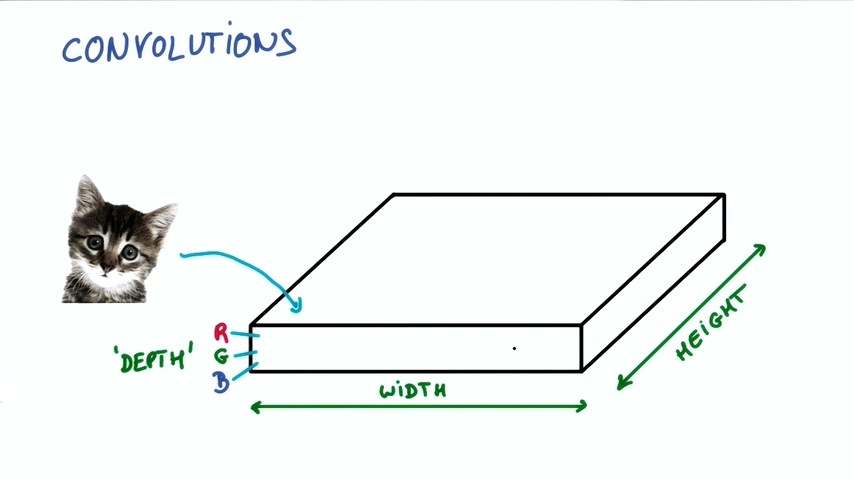 CONVOLUTIONS
R
'DEPTH' G
B
WIDTH
HEIGHT